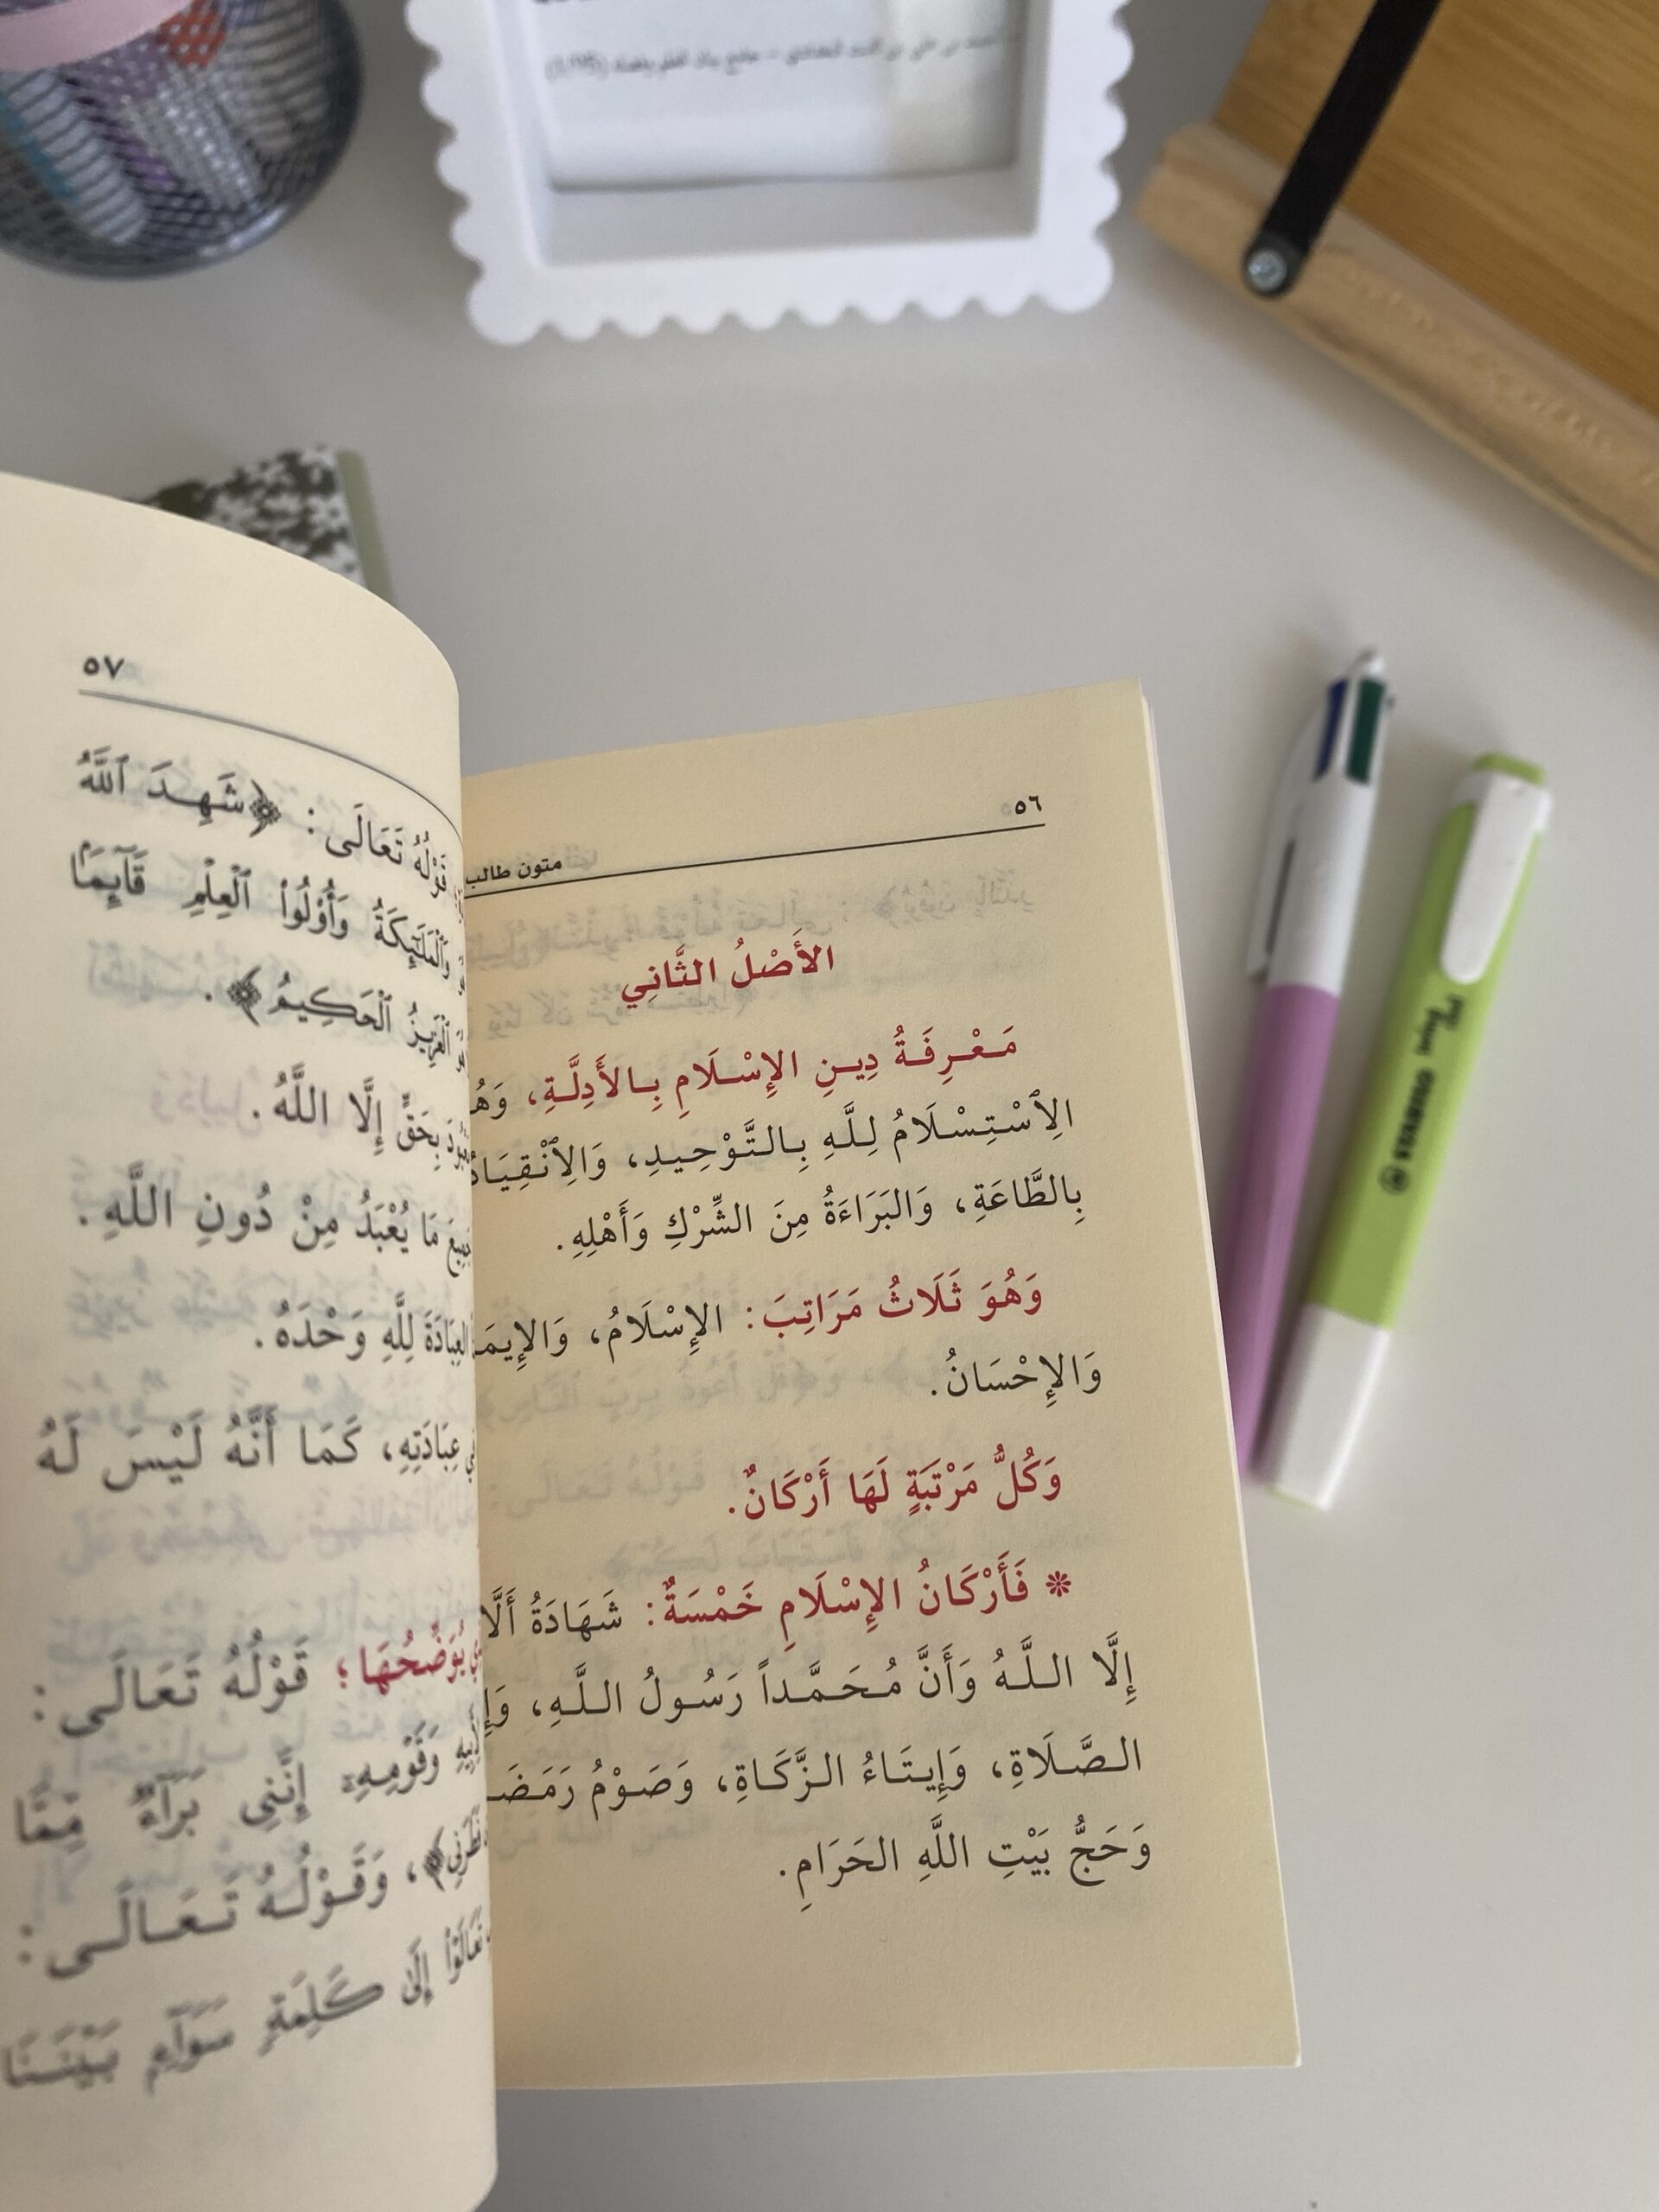 ٥٦
متون طالب
الأَصْلُ الثَّانِي
مَعْرِفَةُ دِينِ الإِسْلَامِ بِالأَدِلَّةِ، وَهُ
الِٱسْتِسْلَامُ لِلَّهِ بِالتَّوْحِيدِ، وَالِٱنْقِيَادُ
بِالطَّاعَةِ، وَالبَرَاءَةُ مِنَ الشِّرْكِ وَأَهْلِهِ.
وَهُوَ ثَلَاثُ مَرَاتِبَ: الإِسْلَامُ، وَالإِيمَ
وَالإِحْسَانُ.
وَكُلُّ مَرْتَبَةٍ لَهَا أَرْكَانٌ.
* فَأَرْكَانُ الإِسْلَامِ خَمْسَةٌ: شَهَادَةُ أَلَّا
إِلَّا اللَّهُ وَأَنَّ مُحَمَّداً رَسُولُ اللَّهِ، وَإِ
الصَّلَاةِ، وَإِيتَاءُ الزَّكَاةِ، وَصَوْمُ رَمَضَ
وَحَجُّ بَيْتِ اللَّهِ الحَرَامِ.
٥٧
قَوْلُهُ تَعَالَى: ﴿شَهِدَ ٱللَّهُ
وَٱلْمَلَٰٓئِكَةُ وَأُوْلُواْ ٱلْعِلْمِ قَآئِمَۢا
ٱلْعَزِيزُ ٱلْحَكِيمُ﴾.
بِحَقٍّ إِلَّا اللَّهُ.
مَا يُعْبَدُ مِنْ دُونِ اللَّهِ.
العِبَادَةَ لِلَّهِ وَحْدَهُ.
عِبَادَتِهِ، كَمَا أَنَّهُ لَيْسَ لَهُ
يُوَضِّحُهَا؛ قَوْلُهُ تَعَالَى:
وَقَوْمِهِۦٓ إِنَّنِى بَرَآءٌ مِّمَّا
وَقَوْلُهُ تَعَالَى:
تَعَالَوْاْ إِلَىٰ كَلِمَةٍ سَوَآءٍ بَيْنَنَا
STABILO swing cool